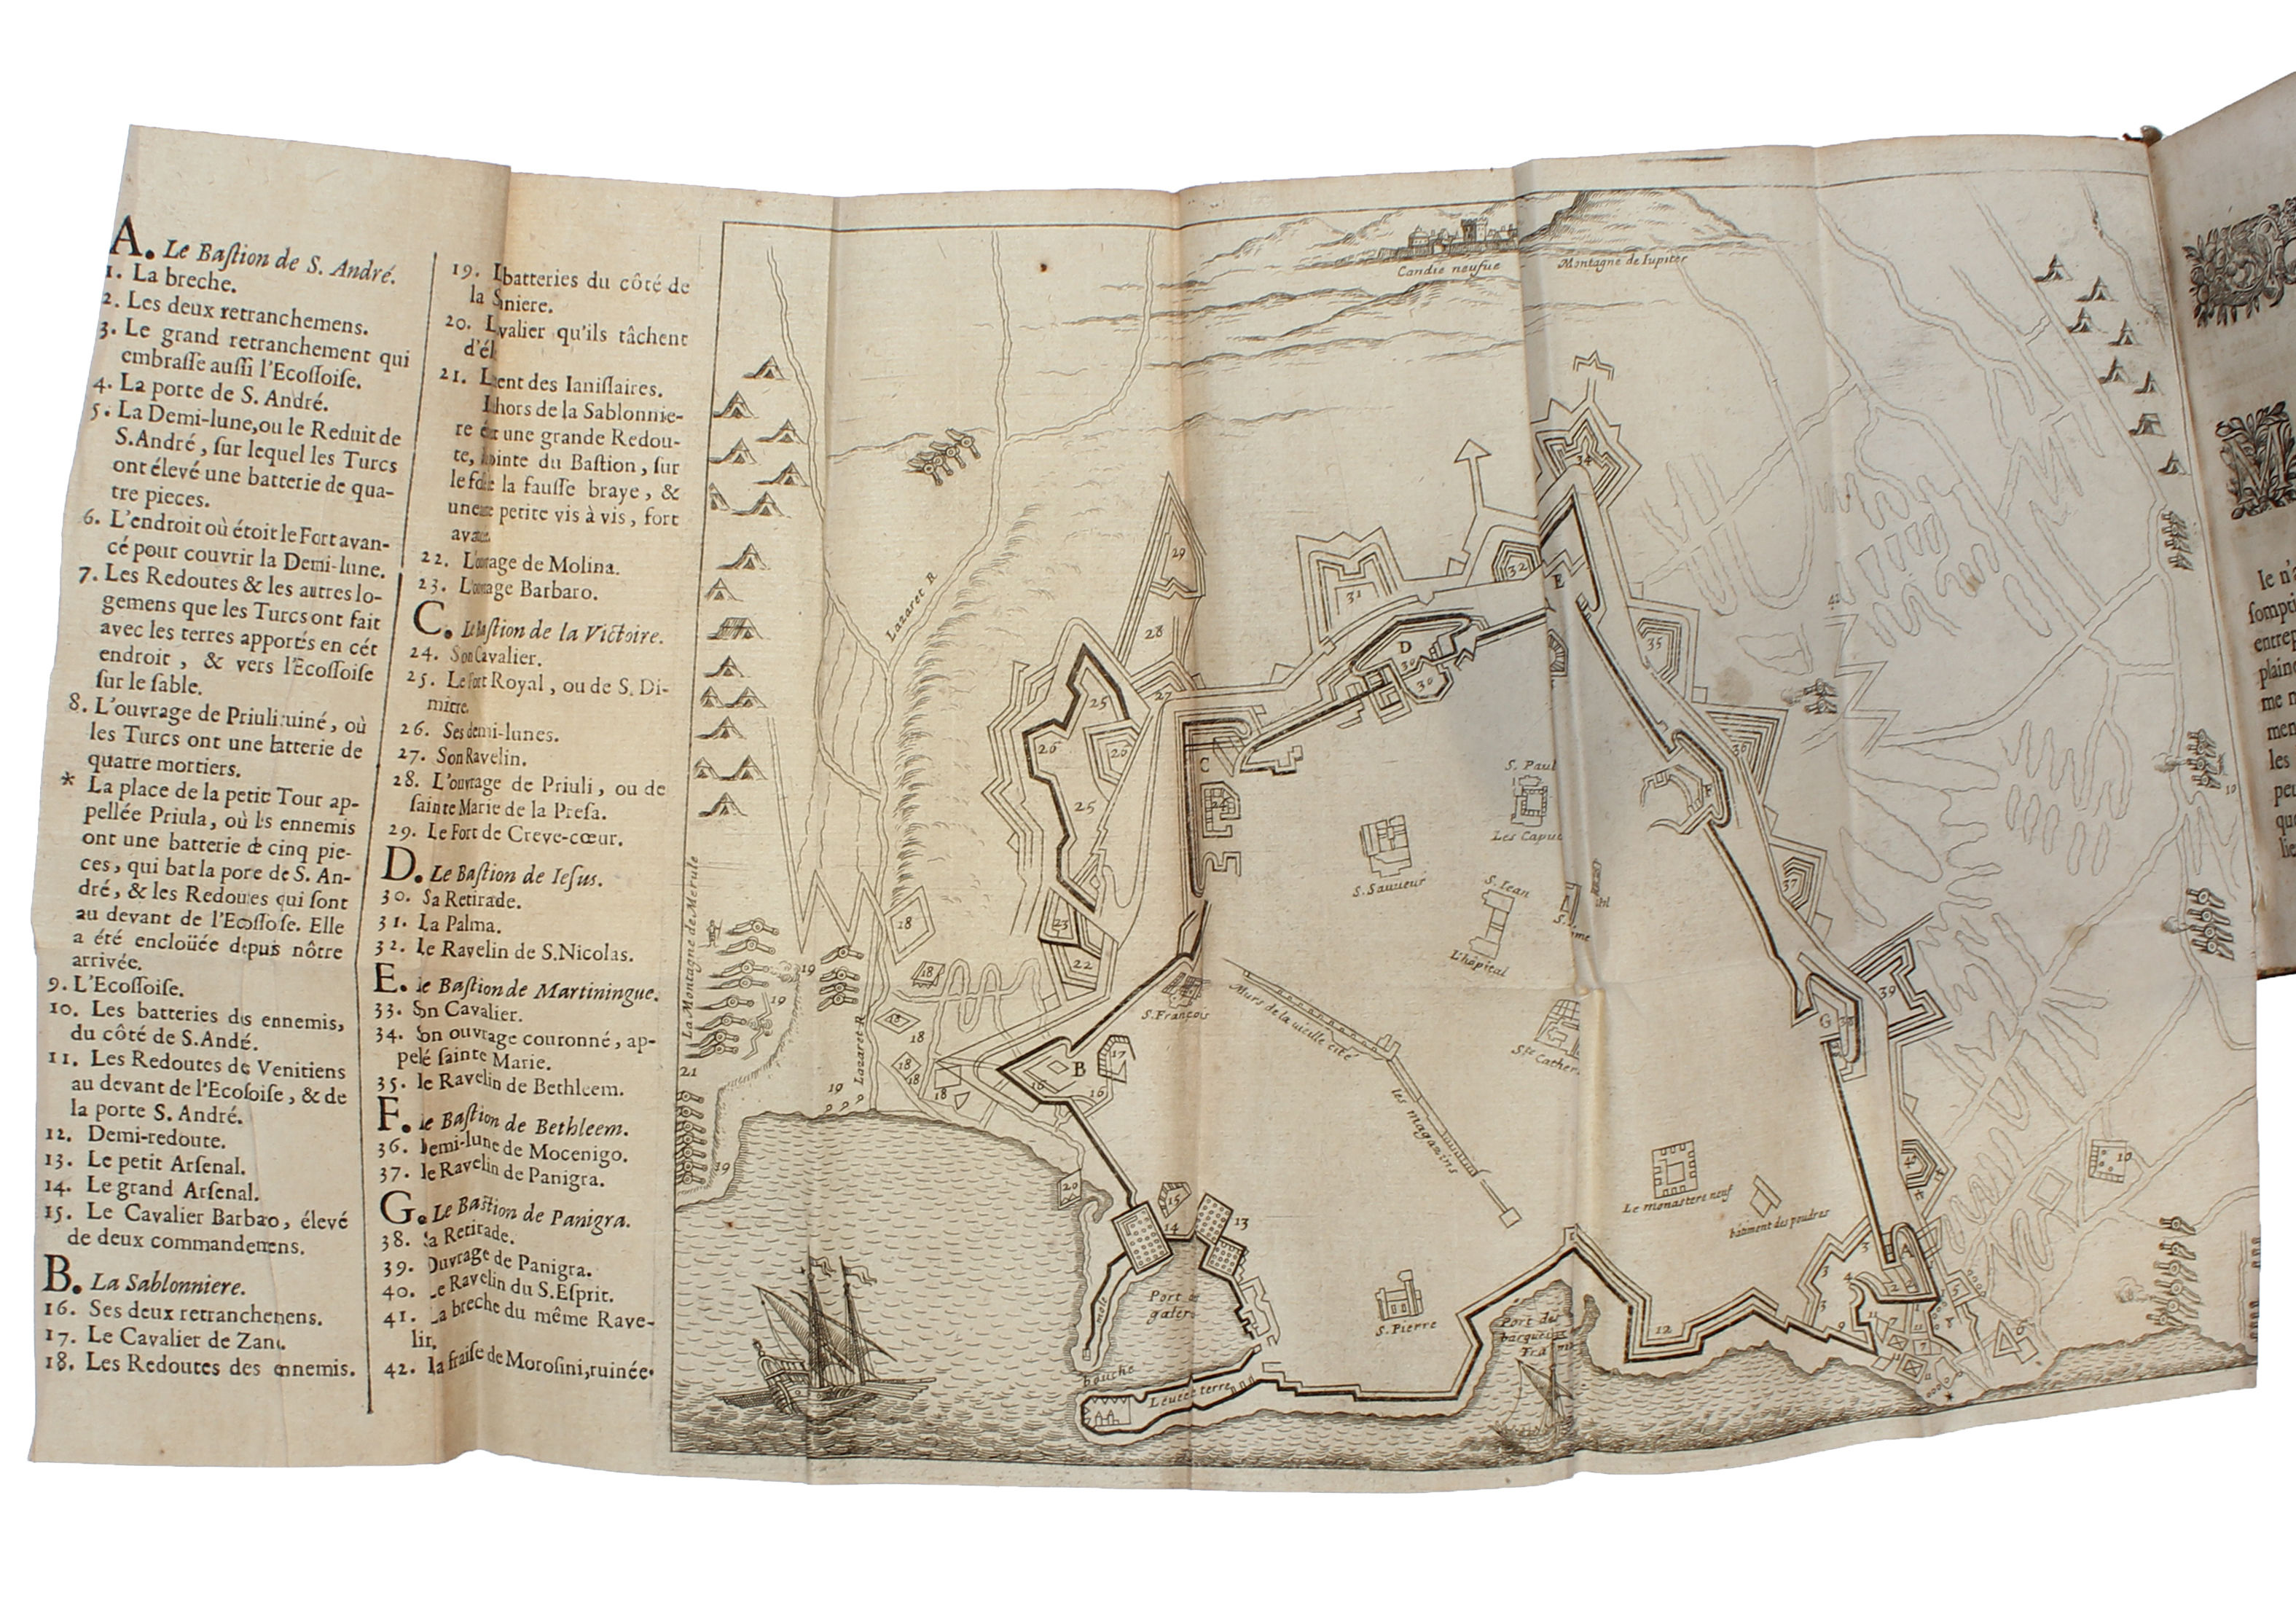 A. Le Baſtion de S. André.
1. La breche.
2. Les deux retranchemens.
3. Le grand retranchement qui
embraſſe auſſi l'Ecoſſoiſe.
4. La porte de S. André.
5. La Demi-lune, ou le Reduit de
S. André, ſur lequel les Turcs
ont élevé une batterie de qua-
tre pieces.
6. L'endroit où étoit le Fort avan-
cé pour couvrir la Demi-lune.
7. Les Redoutes & les autres lo-
gemens que les Turcs ont fait
avec les terres apportés en cét
endroit, & vers l'Ecoſſoiſe
ſur le ſable.
8. L'ouvrage de Priuli ruiné, où
les Turcs ont une batterie de
quatre mortiers.
* La place de la petit Tour ap-
pellée Priula, où les ennemis
ont une batterie de cinq pie-
ces, qui bat la porte de S. An-
dré, & les Redoutes qui ſont
au devant de l'Ecoſſoiſe. Elle
a été encloüée depuis nôtre
arrivée.
9. L'Ecoſſoiſe.
10. Les batteries des ennemis,
du côté de S. André.
11. Les Redoutes de Venitiens
au devant de l'Ecoſoiſe, & de
la porte S. André.
12. Demi-redoute.
13. Le petit Arſenal.
14. Le grand Arſenal.
15. Le Cavalier Barbaro, élevé
de deux commandemens.
B. La Sablonniere.
16. Ses deux retranchemens.
17. Le Cavalier de Zane.
18. Les Redoutes des ennemis.
19. batteries du côté de
la niere.
20. valier qu'ils tâchent
d'él
21. ent des Ianiſſaires.
hors de la Sablonnie-
re une grande Redou-
te, ointe du Baſtion, ſur
le la fauſſe braye, &
une petite vis à vis, fort
22. L'ouvrage de Molina.
23. L'ouvrage Barbaro.
C. Le Baſtion de la Victoire.
24. Son Cavalier.
25. Le Fort Royal, ou de S. Di-
mitre.
26. Ses demi-lunes.
27. Son Ravelin.
28. L'ouvrage de Priuli, ou de
ſainte Marie de la Preſa.
29. Le Fort de Creve-cœur.
D. Le Baſtion de Ieſus.
30. Sa Retirade.
31. La Palma.
32. Le Ravelin de S. Nicolas.
E. le Baſtion de Martiningue.
33. Son Cavalier.
34. Son ouvrage couronné, ap-
pelé ſainte Marie.
35. le Ravelin de Bethleem.
F. le Baſtion de Bethleem.
36. Demi-lune de Mocenigo.
37. le Ravelin de Panigra.
G. Le Baſtion de Panigra.
38. Sa Retirade.
39. Ouvrage de Panigra.
40. Le Ravelin du S. Eſprit.
41. La breche du même Rave-
lin.
42. la fraiſe de Moroſini, ruinée.
Candie neufue
Montagne de Iupiter
Lazaret R
La Montagne de Merule
Lazaret R
S. Paul
Les Capuc
S. Sauueur
S. Iean
L'hôpital
S. François
Murs de la vieille cité
les magazins
Ste Cather
Le monastere neuf
bâtiment des poudres
S. Pierre
Port de
galer
mole
bouche
Leuée terre
Port des
barques
Tra
29
28
27
25
26
26
25
23
22
18
18
18
18
19
19
19
19
21
20
B
16
16
17
15
14
13
C
24
D
30
30
31
32
E
34
35
36
F
37
39
G
38
42
10
10
A
12
Ie n'a
ſompti
entrep
plaine
me n
men
les
peu
qu
lie